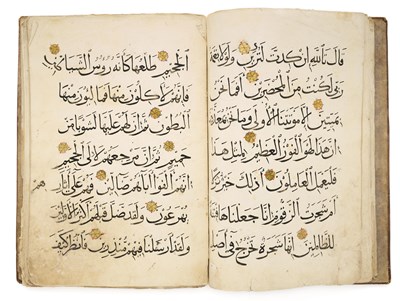 قال تالله ان كدت لتردين ولولا نعمة
ربي لكنت من المحضرين افما نحن
بميتين الا موتتنا الاولى وما نحن
ان هذا لهو الفوز العظيم لمثل هذا
فليعمل العاملون اذلك خير نزلا
ام شجرة الزقوم انا جعلناها فتنة
للظالمين انها شجرة تخرج في اصل
الجحيم طلعها كانه روس الشياطين
فانهم لاكلون منها فمالئون منها
البطون ثم ان لهم عليها لشوبا من
حميم ثم ان مرجعهم لالى الجحيم
انهم الفوا اباهم ضالين فهم على اثارهم
يهرعون ولقد ضل قبلهم اكثر الاولين
ولقد ارسلنا فيهم منذرين فانظر كيف